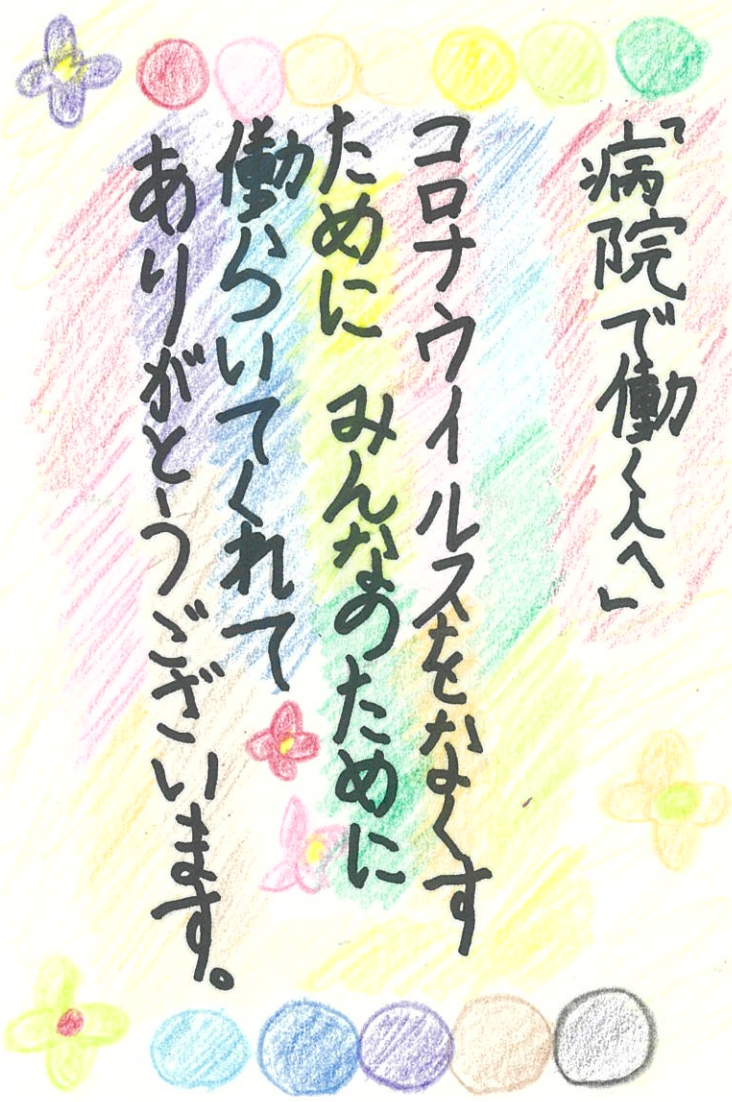 「病院で働く人へ」
コロナウイルスをなくす
ために　みんなのために
働らいてくれて
ありがとうございます。